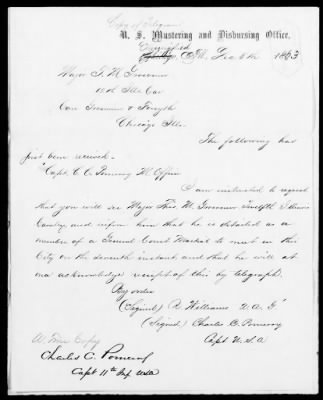 Copy of Telegram
U. S. Mustering and Disbursing Office,
Springfield Ill. Feb 6th 1863
Major T. M. Grosvenor
12th Ills Cav
Care Grosvenor & Forsyth
Chicago Ills.
The following has
just been received.
"Capt. C. C. Pomeroy M. Officer
I am instructed to request
that you will see Major Thos. M. Grosvenor Twelfth Illinois
Cavalry and inform him that he is detailed as a
member of a General Court Martial to meet in this
City on the seventh instant and that he will at
once acknowledge receipt of this by telegraph.
By order
(Signed) R. Williams A. A. G"
(Signed) Charles C. Pomeroy
Capt U.S.A
A True Copy
Charles C. Pomeroy
Capt 11th Inf USA